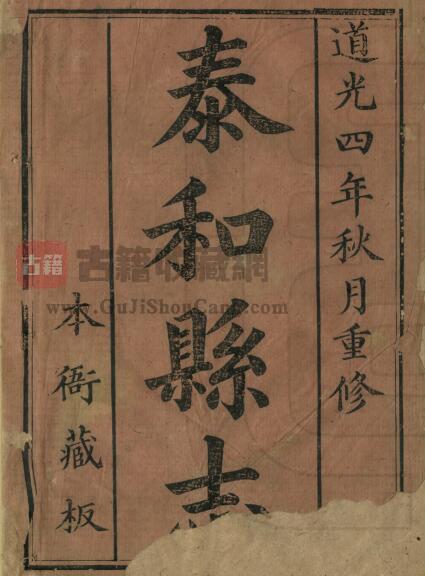 道光四年秋月重修
泰和縣志
本衙藏板
古籍
古籍收藏網
www.GuJiShouCang.com